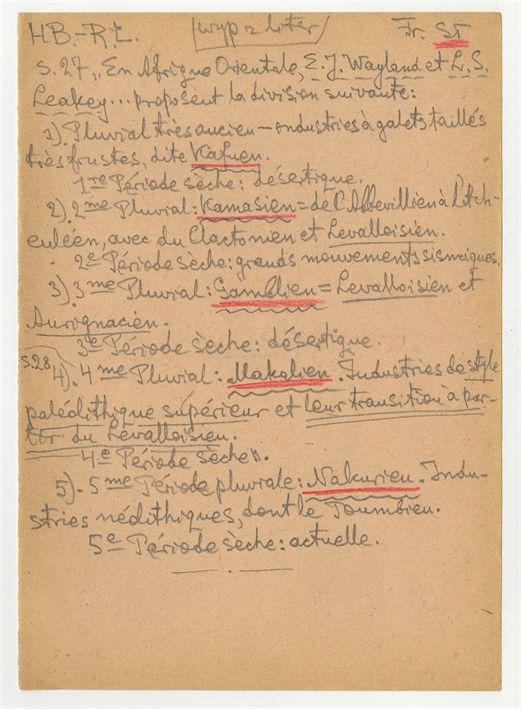 HB.-R.L. [wyp z liter/ Fr. St
S.27. „En Afrique Orientale, E.J. Wayland et L.S.
Leakey... proposent la division suivante:
1). Pluvial très ancien — industries à galets taillés
très frustes, dite Kafuen.
1re Période sèche: désertique.
2). 2me Pluvial: Kamasien = de l'Abbevillien à l'Ach-
euléen, avec du Clactonien et Levalloisien.
2e Période sèche: grands mouvements sismiques.
3) 3me Pluvial: Gamblien = Levalloisien et
Aurignacien.
3e Période sèche: désertique.
S.28 4). 4me Pluvial: Makalien. Industries de style
paléolithique supérieur et leur transition à par-
tir du Levalloisien.
4e Période sèche".
5). 5me Période pluviale: Nakurien. Indu-
stries néolithiques, dont le Toumbien.
5e Période sèche: actuelle.